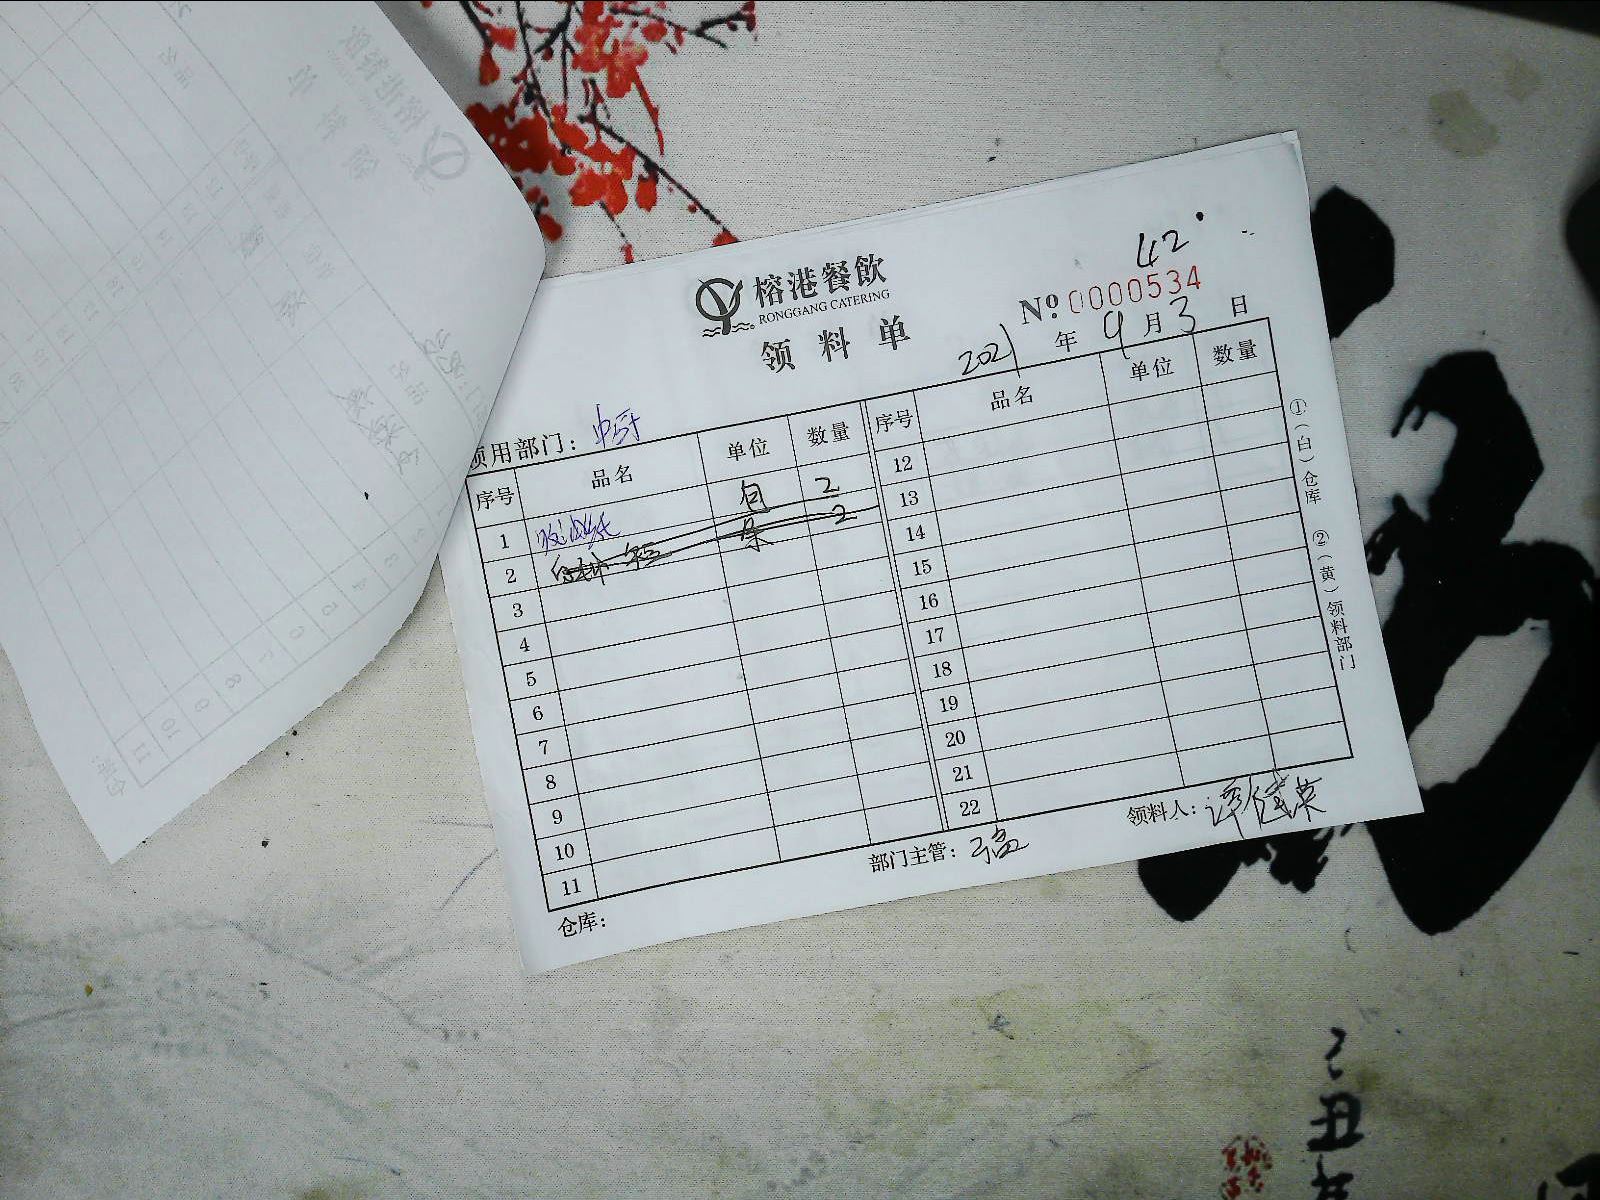 42
榕港餐飲
RONGGANG CATERING
Nº: 0000534
领料单
2021 年 9 月 3 日
领用部门：中厨
序号 品名 单位 数量 序号 品名 单位 数量
1 吸油纸 包 2 12
2 2 13
3 14
4 15
5 16
6 17
7 18
8 19
9 20
10 21
11 22
①（白）仓库 ②（黄）领料部门
仓库： 部门主管： 领料人：
乙丑